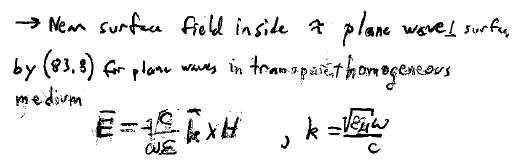 → Near surface field inside ≈ plane wave ⊥ surface
by (83.8) for plane waves in transparent homogeneous
medium
E̅ = -c/ωε k̅ × H , k = √εμ ω / c